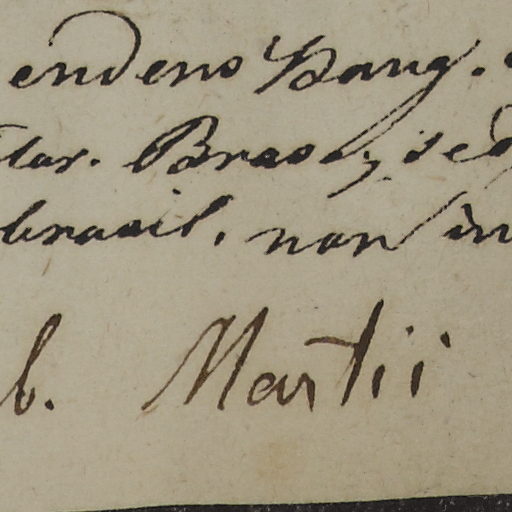 endens Spang.
lar. Brasil, sed
brasil. non in
b. Martii